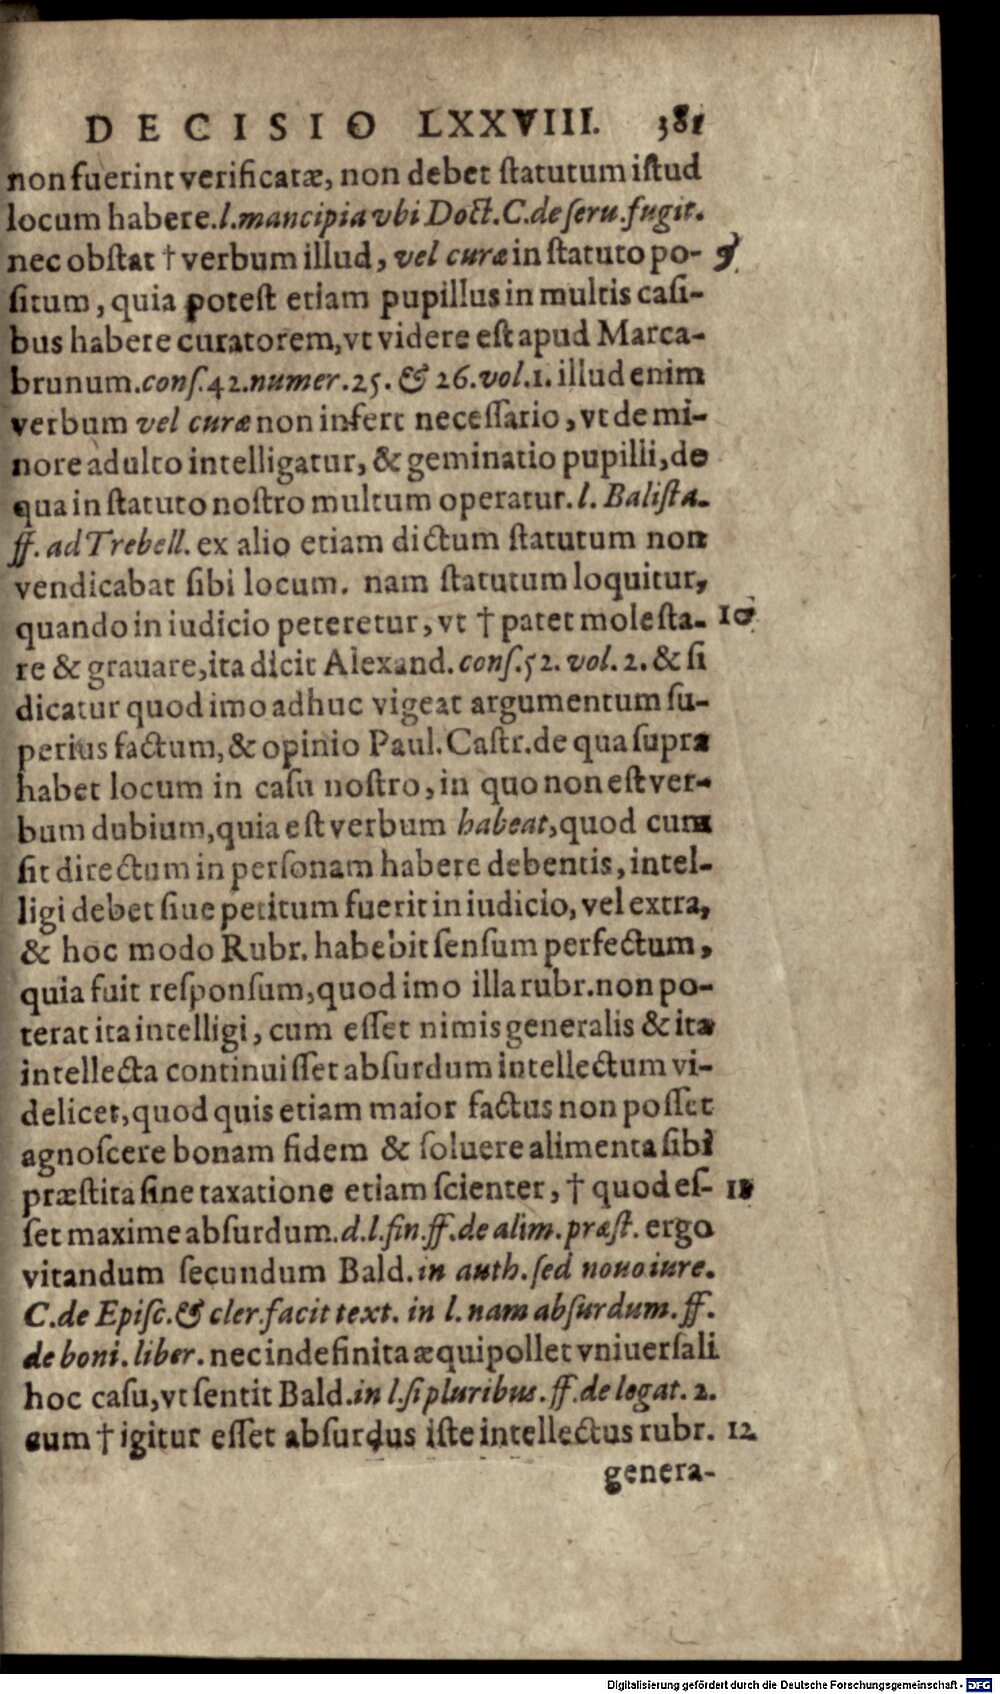 DECISIO LXXVIII. 381
non fuerint verificatæ, non debet ſtatutum iſtud
locum habere. l. mancipia vbi Doct. C. de ſeru. fugit.
nec obſtat † verbum illud, vel curæ in ſtatuto po- 9
ſitum, quia poteſt etiam pupillus in multis caſi-
bus habere curatorem, vt videre eſt apud Marca-
brunum. conſ. 42. numer. 25. & 26. vol. 1. illud enim
verbum vel curæ non infert neceſſario, vt de mi-
nore adulto intelligatur, & geminatio pupilli, de
qua in ſtatuto noſtro multum operatur. l. Baliſta.
ff. ad Trebell. ex alio etiam dictum ſtatutum non
vendicabat ſibi locum. nam ſtatutum loquitur,
quando in iudicio peteretur, vt † patet moleſta- 10
re & grauare, ita dicit Alexand. conſ. 52. vol. 2. & ſi
dicatur quod imo adhuc vigeat argumentum ſu-
perius factum, & opinio Paul. Caſtr. de qua ſupra
habet locum in caſu noſtro, in quo non eſt ver-
bum dubium, quia eſt verbum habeat, quod cum
ſit directum in perſonam habere debentis, intel-
ligi debet ſiue petitum fuerit in iudicio, vel extra,
& hoc modo Rubr. habebit ſenſum perfectum,
quia fuit reſponſum, quod imo illa rubr. non po-
terat ita intelligi, cum eſſet nimis generalis & ita
intellecta continuiſſet abſurdum intellectum vi-
delicet, quod quis etiam maior factus non poſſet
agnoſcere bonam fidem & ſoluere alimenta ſibi
præſtita ſine taxatione etiam ſcienter, † quod eſ- 11
ſet maxime abſurdum. d. l. fin. ff. de alim. præſt. ergo
vitandum ſecundum Bald. in auth. ſed nouo iure.
C. de Epiſc. & cler. facit text. in l. nam abſurdum. ff.
de boni. liber. nec indefinita æquipollet vniuerſali
hoc caſu, vt ſentit Bald. in l. ſi pluribus. ff. de legat. 2.
cum † igitur eſſet abſurdus iſte intellectus rubr. 12
genera-
Digitalisierung gefördert durch die Deutsche Forschungsgemeinschaft - DFG